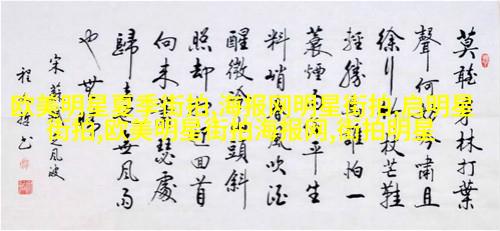 欧美明星夏季街拍,海报网明星街拍,启明星
街拍,欧美明星街拍海报网,街拍明星
莫聽林打葉
聲何妨吟嘯且
徐行杖芒鞋
輕勝誰怕一
蓑煙平生
料峭春風吹酒
醒微冷頭斜
照却回首
向来瑟處
歸去無風雨
也無
宋蘇之風波
程